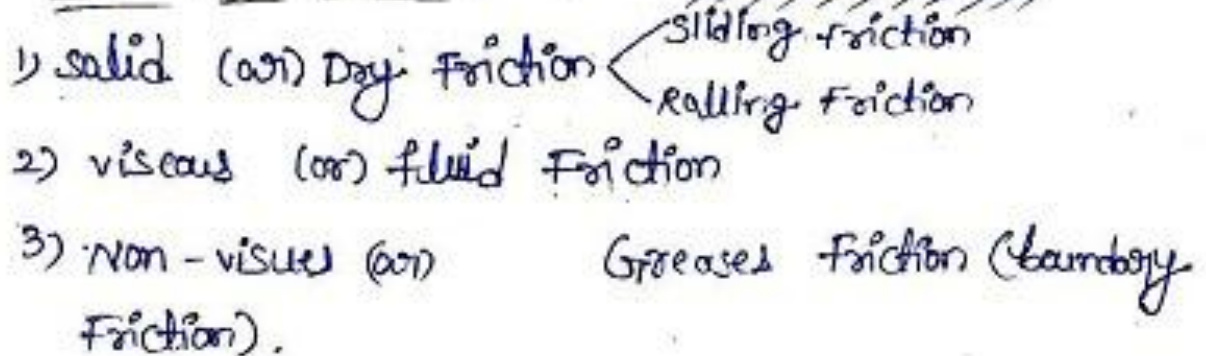 1) Solid (or) Dry Friction < Sliding Friction
Rolling Friction
2) viscous (or) fluid Friction
3) Non-visues (or) Greases Friction (boundary
Friction).